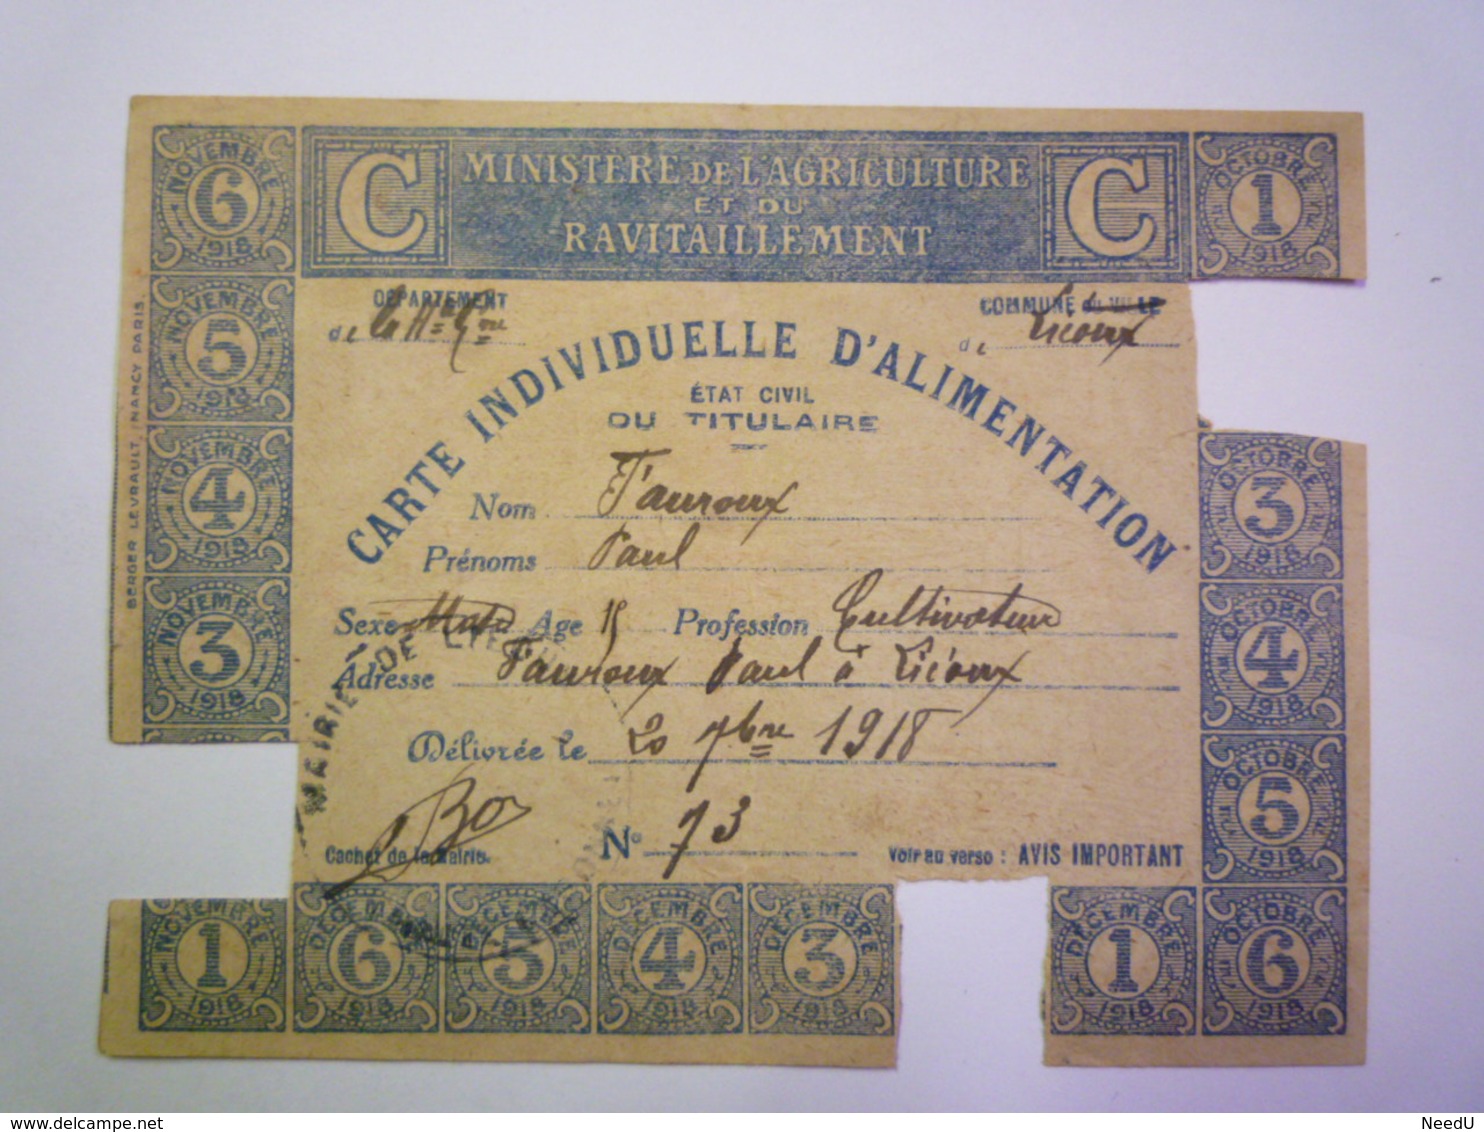 NOVEMBRE 6 1918
C
MINISTÈRE DE L'AGRICULTURE
ET DU
RAVITAILLEMENT
C
OCTOBRE 1 1918
DÉPARTEMENT
de la Hte Gne
COMMUNE ou VILLE
de Licoux
CARTE INDIVIDUELLE D'ALIMENTATION
ÉTAT CIVIL
DU TITULAIRE
Nom Tauroux
Prénoms Paul
Sexe Age Profession Cultivateur
Adresse Tauroux Paul à Licoux
Délivrée le 20 7bre 1918
N° 73
Cachet de la Mairie.
Voir au verso : AVIS IMPORTANT
MAIRIE DE
NOVEMBRE 5 1918
NOVEMBRE 4 1918
NOVEMBRE 3 1918
BERGER LEVRAULT, NANCY PARIS.
OCTOBRE 3 1918
OCTOBRE 4 1918
OCTOBRE 5 1918
NOVEMBRE 1 1918
DÉCEMBRE 6 1918
DÉCEMBRE 5 1918
DÉCEMBRE 4 1918
DÉCEMBRE 3 1918
DÉCEMBRE 1 1918
OCTOBRE 6 1918
www.delcampe.net
NeedU